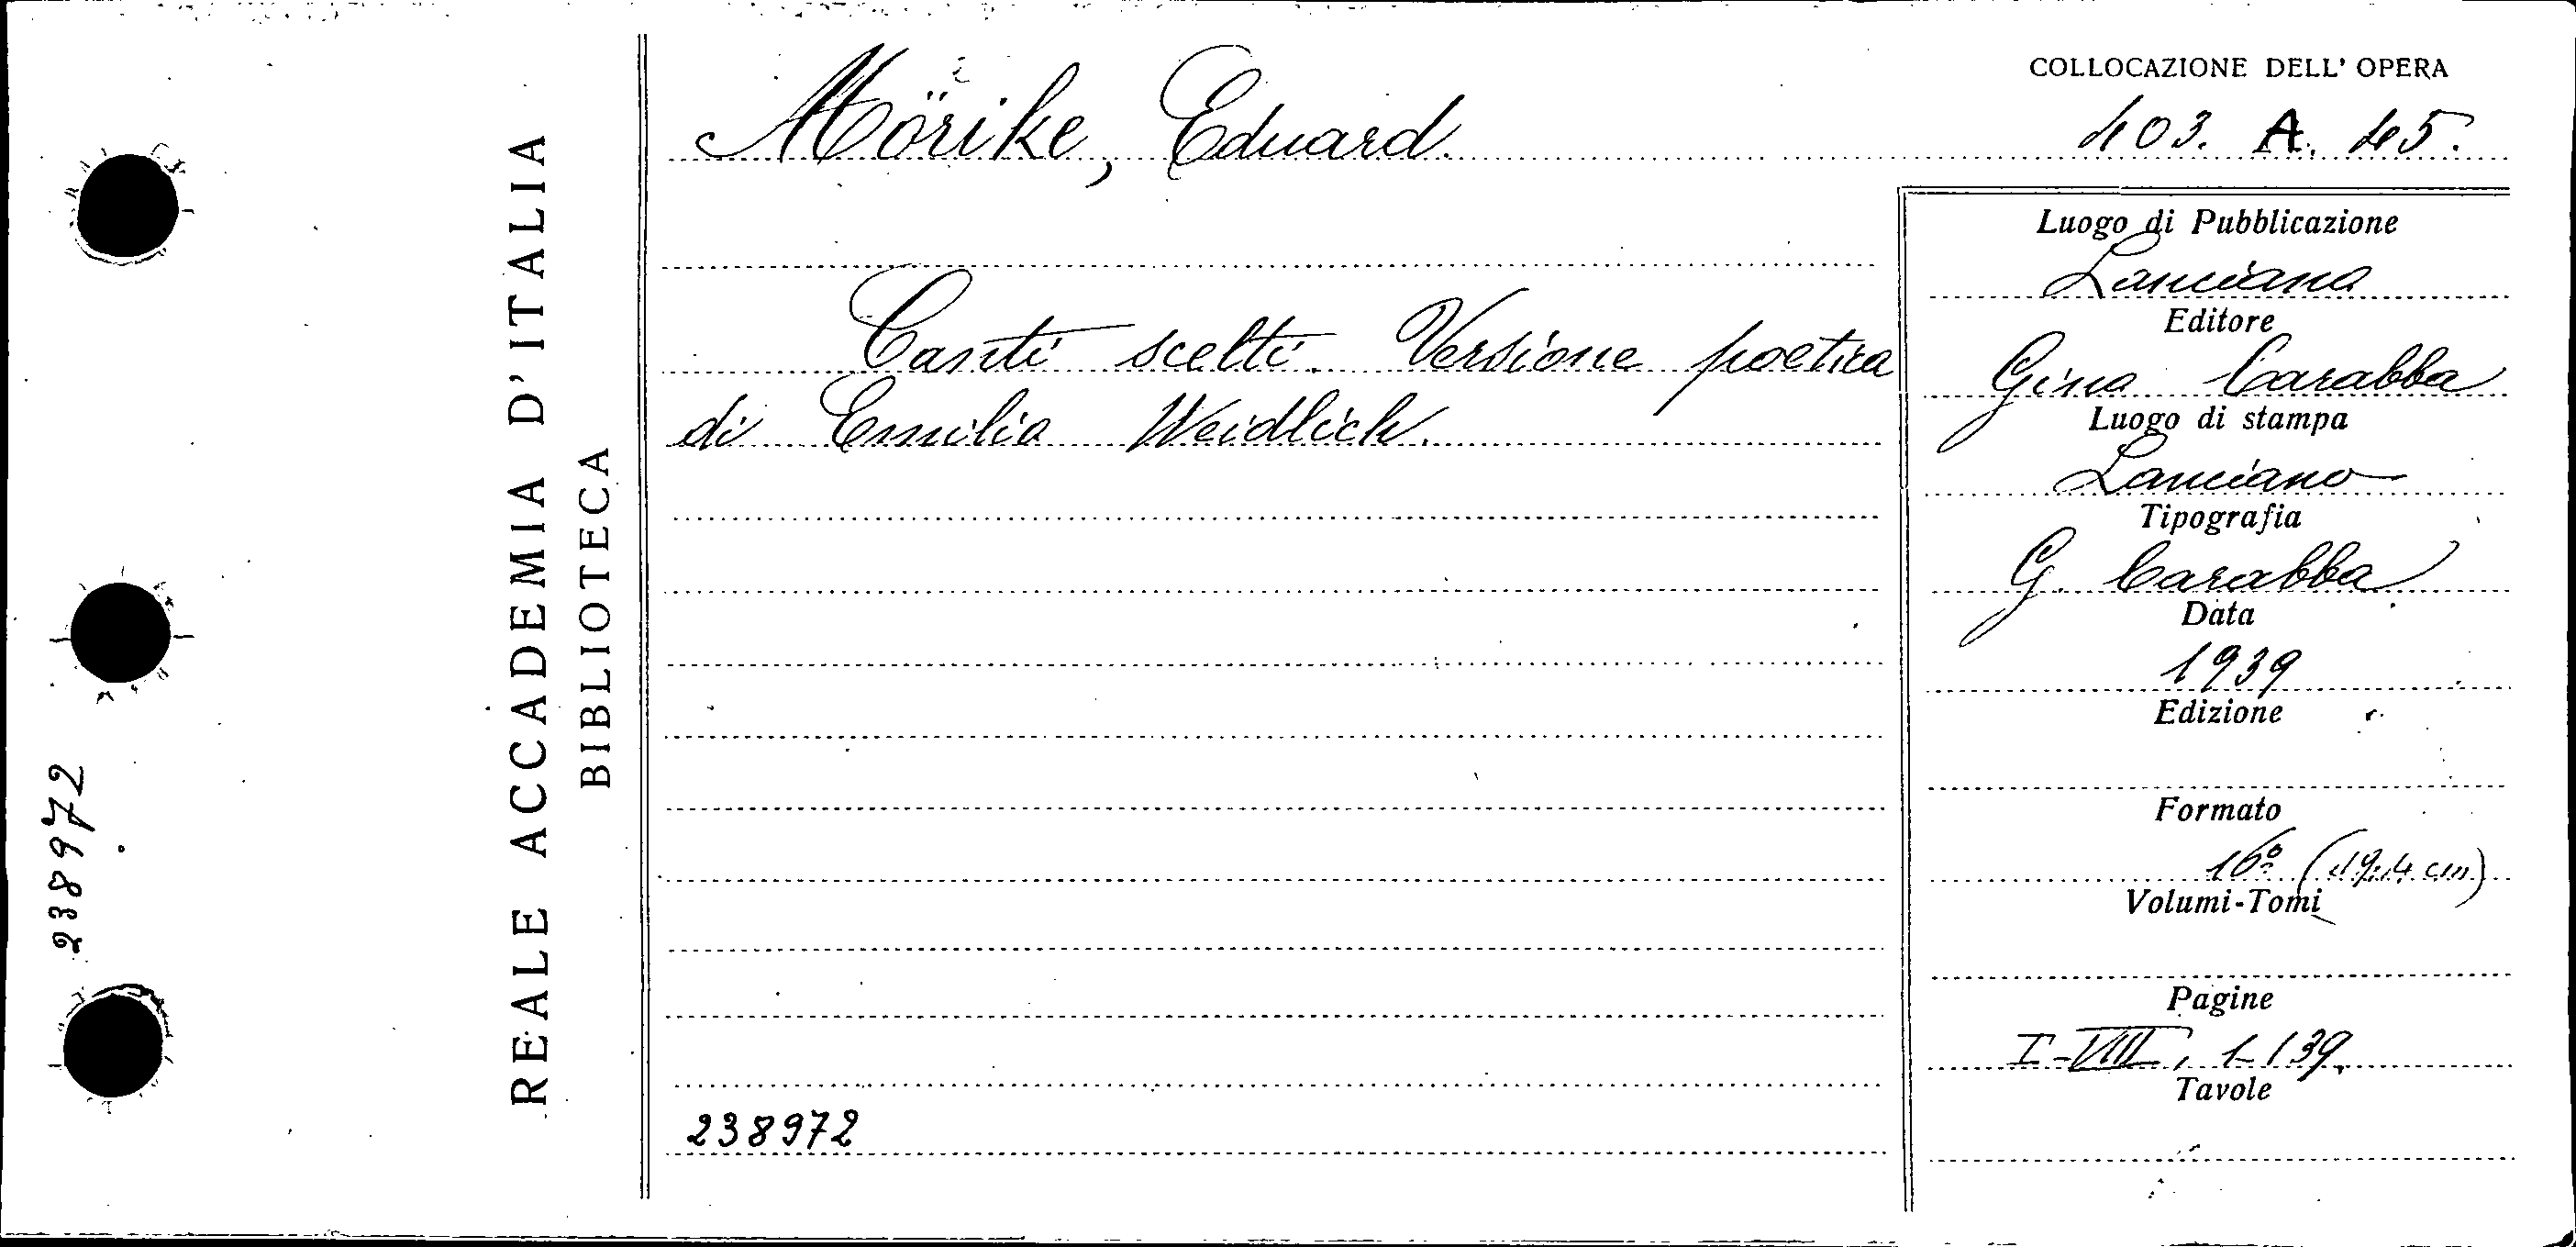 Mörike, Eduard.
COLLOCAZIONE DELL' OPERA
403. A. 45.
Canti scelti. Versione poetica
di Emilia Weidlich.
238972
Luogo di Pubblicazione
Lanciano
Editore
Gino Carabba
Luogo di stampa
Lanciano
Tipografia
G. Carabba
Data
1939
Edizione
Formato
16º (19,4 cm)
Volumi-Tomi
Pagine
I-VIII, 1-139.
Tavole
REALE ACCADEMIA D'ITALIA
BIBLIOTECA
238972